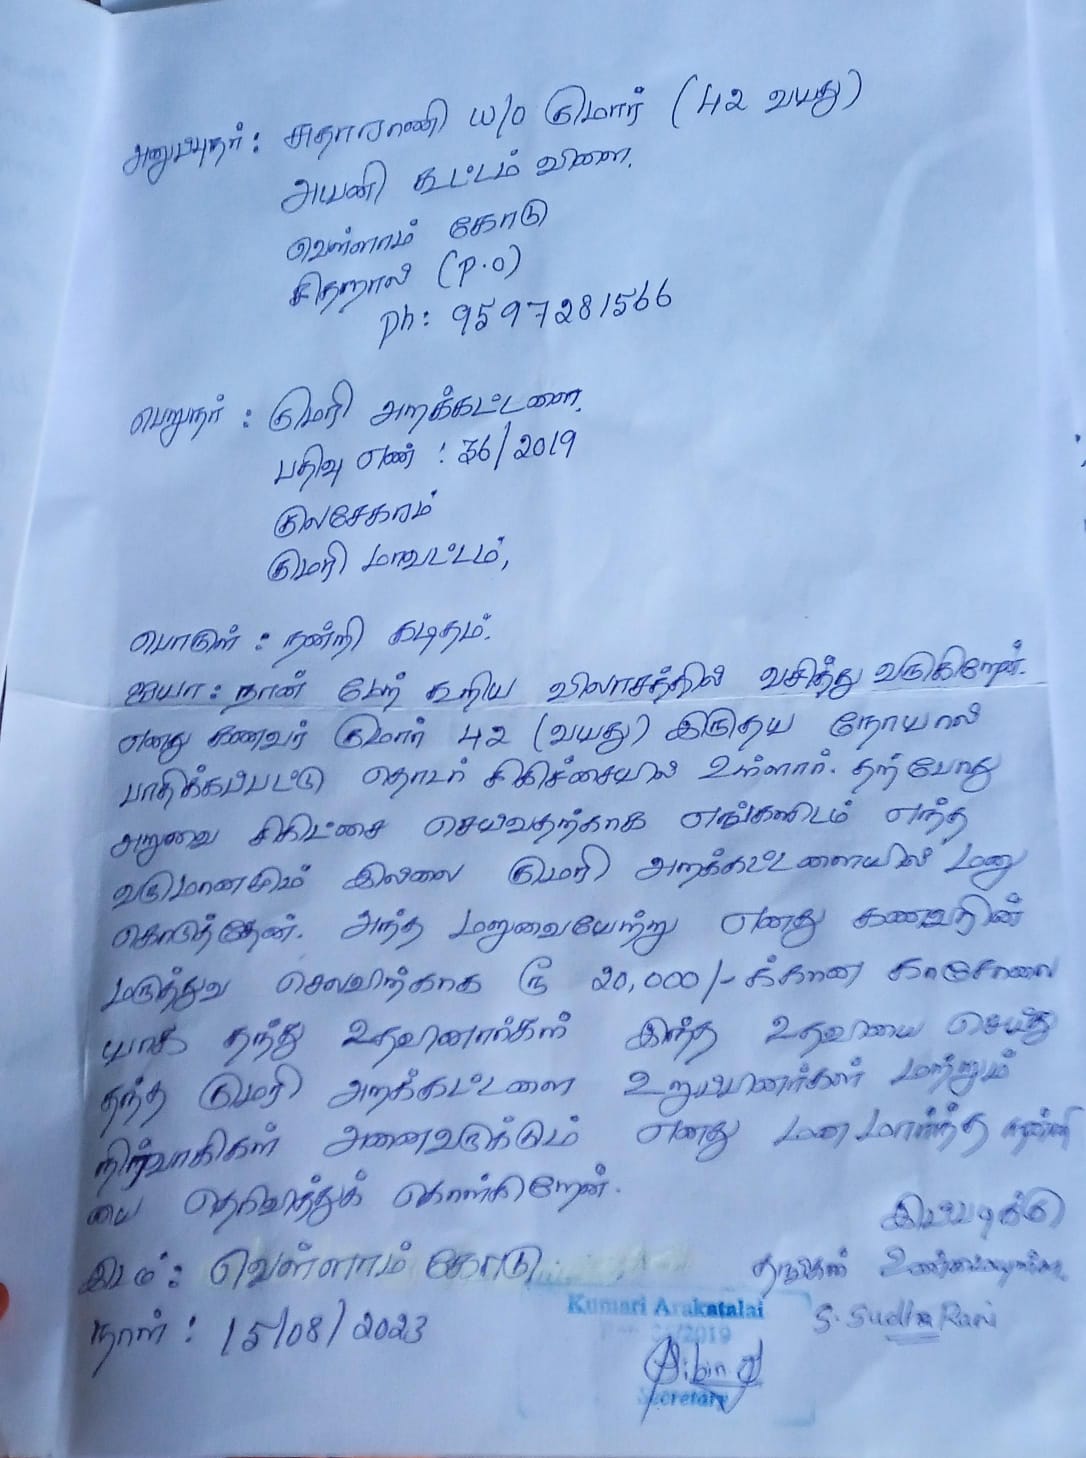 அனுப்புநர் : சுதாராணி w/o குமார் (42 வயது)
அயனி கூட்டம் விளை.
வெள்ளாம் கோடு
சிதறால் (P.O)
Ph: 9597281566
பெறுநர் : குமரி அறக்கட்டளை.
பதிவு எண் : 36/2019
குலசேகரம்
குமரி மாவட்டம்,
பொருள் : நன்றி கடிதம்.
ஐயா: நான் மேற் கூறிய விலாசத்தில் வசித்து வருகிறேன்.
எனது கணவர் குமார் 42 (வயது) இருதய நோயால்
பாதிக்கப்பட்டு தொடர் சிகிச்சையில் உள்ளார். தற்போது
அறுவை சிகிட்சை செய்வதற்காக எங்களிடம் எந்த
வருமானமும் இல்லை குமரி அறக்கட்டளையில் மனு
கொடுத்தேன். அந்த மனுவையேற்று எனது கணவரின்
மருத்துவ செலவிற்காக ரூ 20,000/- க்கான காசோலை
யாக தந்து உதவினார்கள் இந்த உதவியை செய்து
தந்த குமரி அறக்கட்டளை உறுப்பினர்கள் மற்றும்
நிர்வாகிகள் அனைவருக்கும் எனது மனமார்ந்த நன்றி
யை தெரிவித்துக் கொள்கிறேன்.
இப்படிக்கு
இடம் : வெள்ளாம் கோடு தங்கள் உண்மையுள்ள
நாள் : 15/08/2023 S. Sudha Rani
Kumari Arakatalai
/2019
Bibin
Secretary